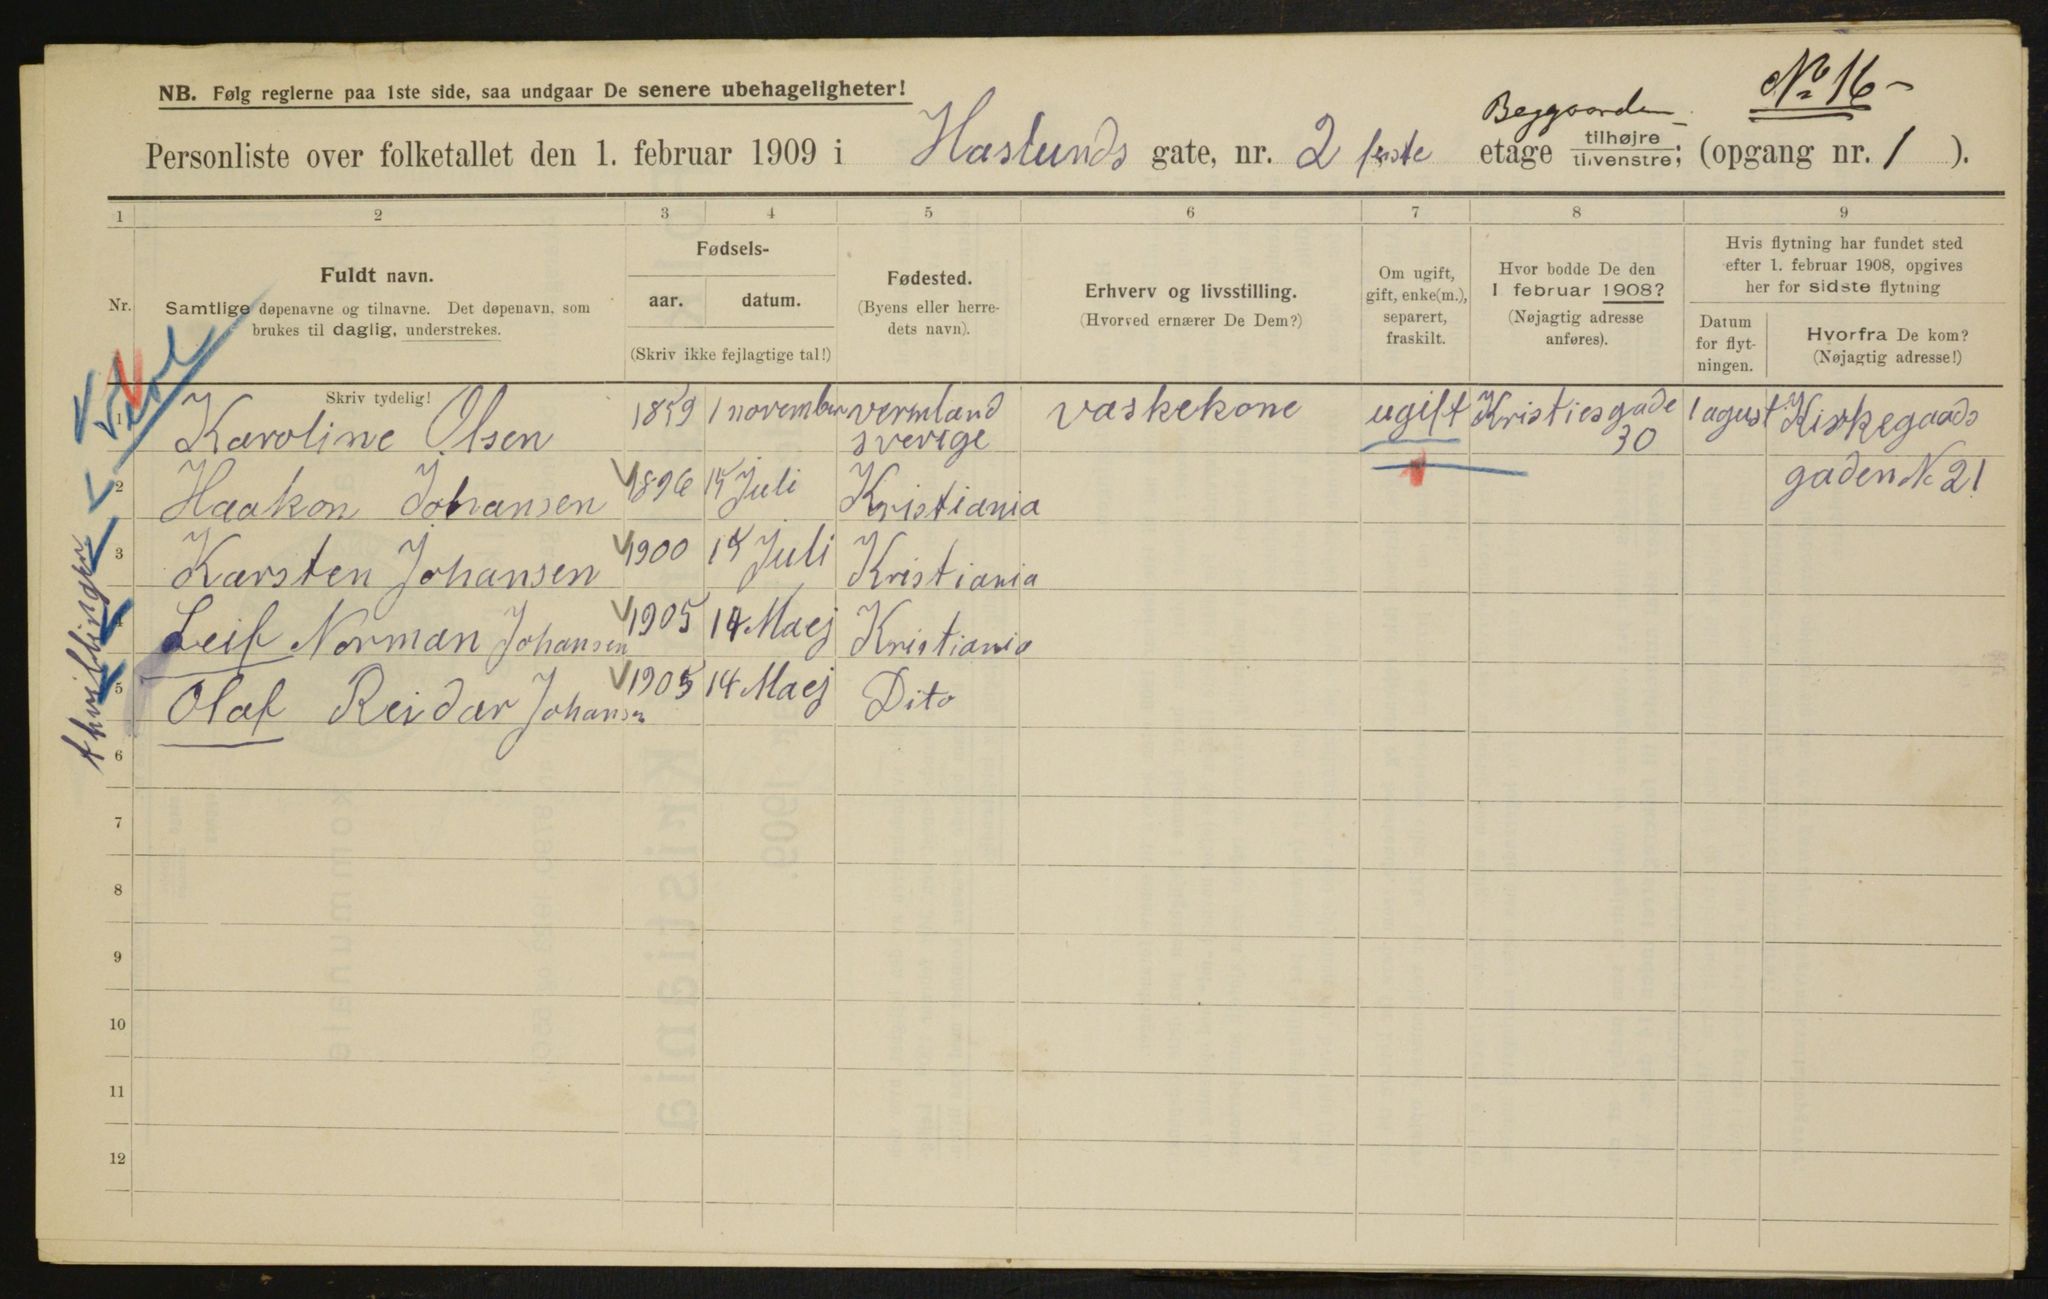 No 16
NB. Følg reglerne paa 1ste side, saa undgaar De senere ubehageligheter!
Personliste over folketallet den 1. februar 1909 i Haslunds gate, nr. 2 første etage tilhøjre tilvenstre; (opgang nr. 1 ).
1 2 3 4 5 6 7 8 9
Nr.
Fuldt navn.
Samtlige døpenavne og tilnavne. Det døpenavn, som
brukes til daglig, understrekes.
Skriv tydelig!
Fødsels-
aar. datum.
(Skriv ikke fejlagtige tal!)
Fødested.
(Byens eller herre-
dets navn).
Erhverv og livsstilling.
(Hvorved ernærer De Dem?)
Om ugift,
gift, enke(m.),
separert,
fraskilt.
Hvor bodde De den
1 februar 1908?
(Nøjagtig adresse
anføres).
Hvis flytning har fundet sted
efter 1. februar 1908, opgives
her for sidste flytning
Datum
for flyt-
ningen.
Hvorfra De kom?
(Nøjagtig adresse!)
1 Karoline Olsen 1859 1 november vermland sverige vaskekone ugift Kristiesgade 30 1 agust Kirkegaads
2 Haakon Johansen 1896 15 Juli Kristiania gaden N 21
3 Karsten Johansen 1900 15 Juli Kristiania
4 Leif Norman Johansen 1905 14 Maej Kristiania
5 Olaf Reidar Johansen 1905 14 Maej Dito
thvillinger
6
7
8
9
10
11
12